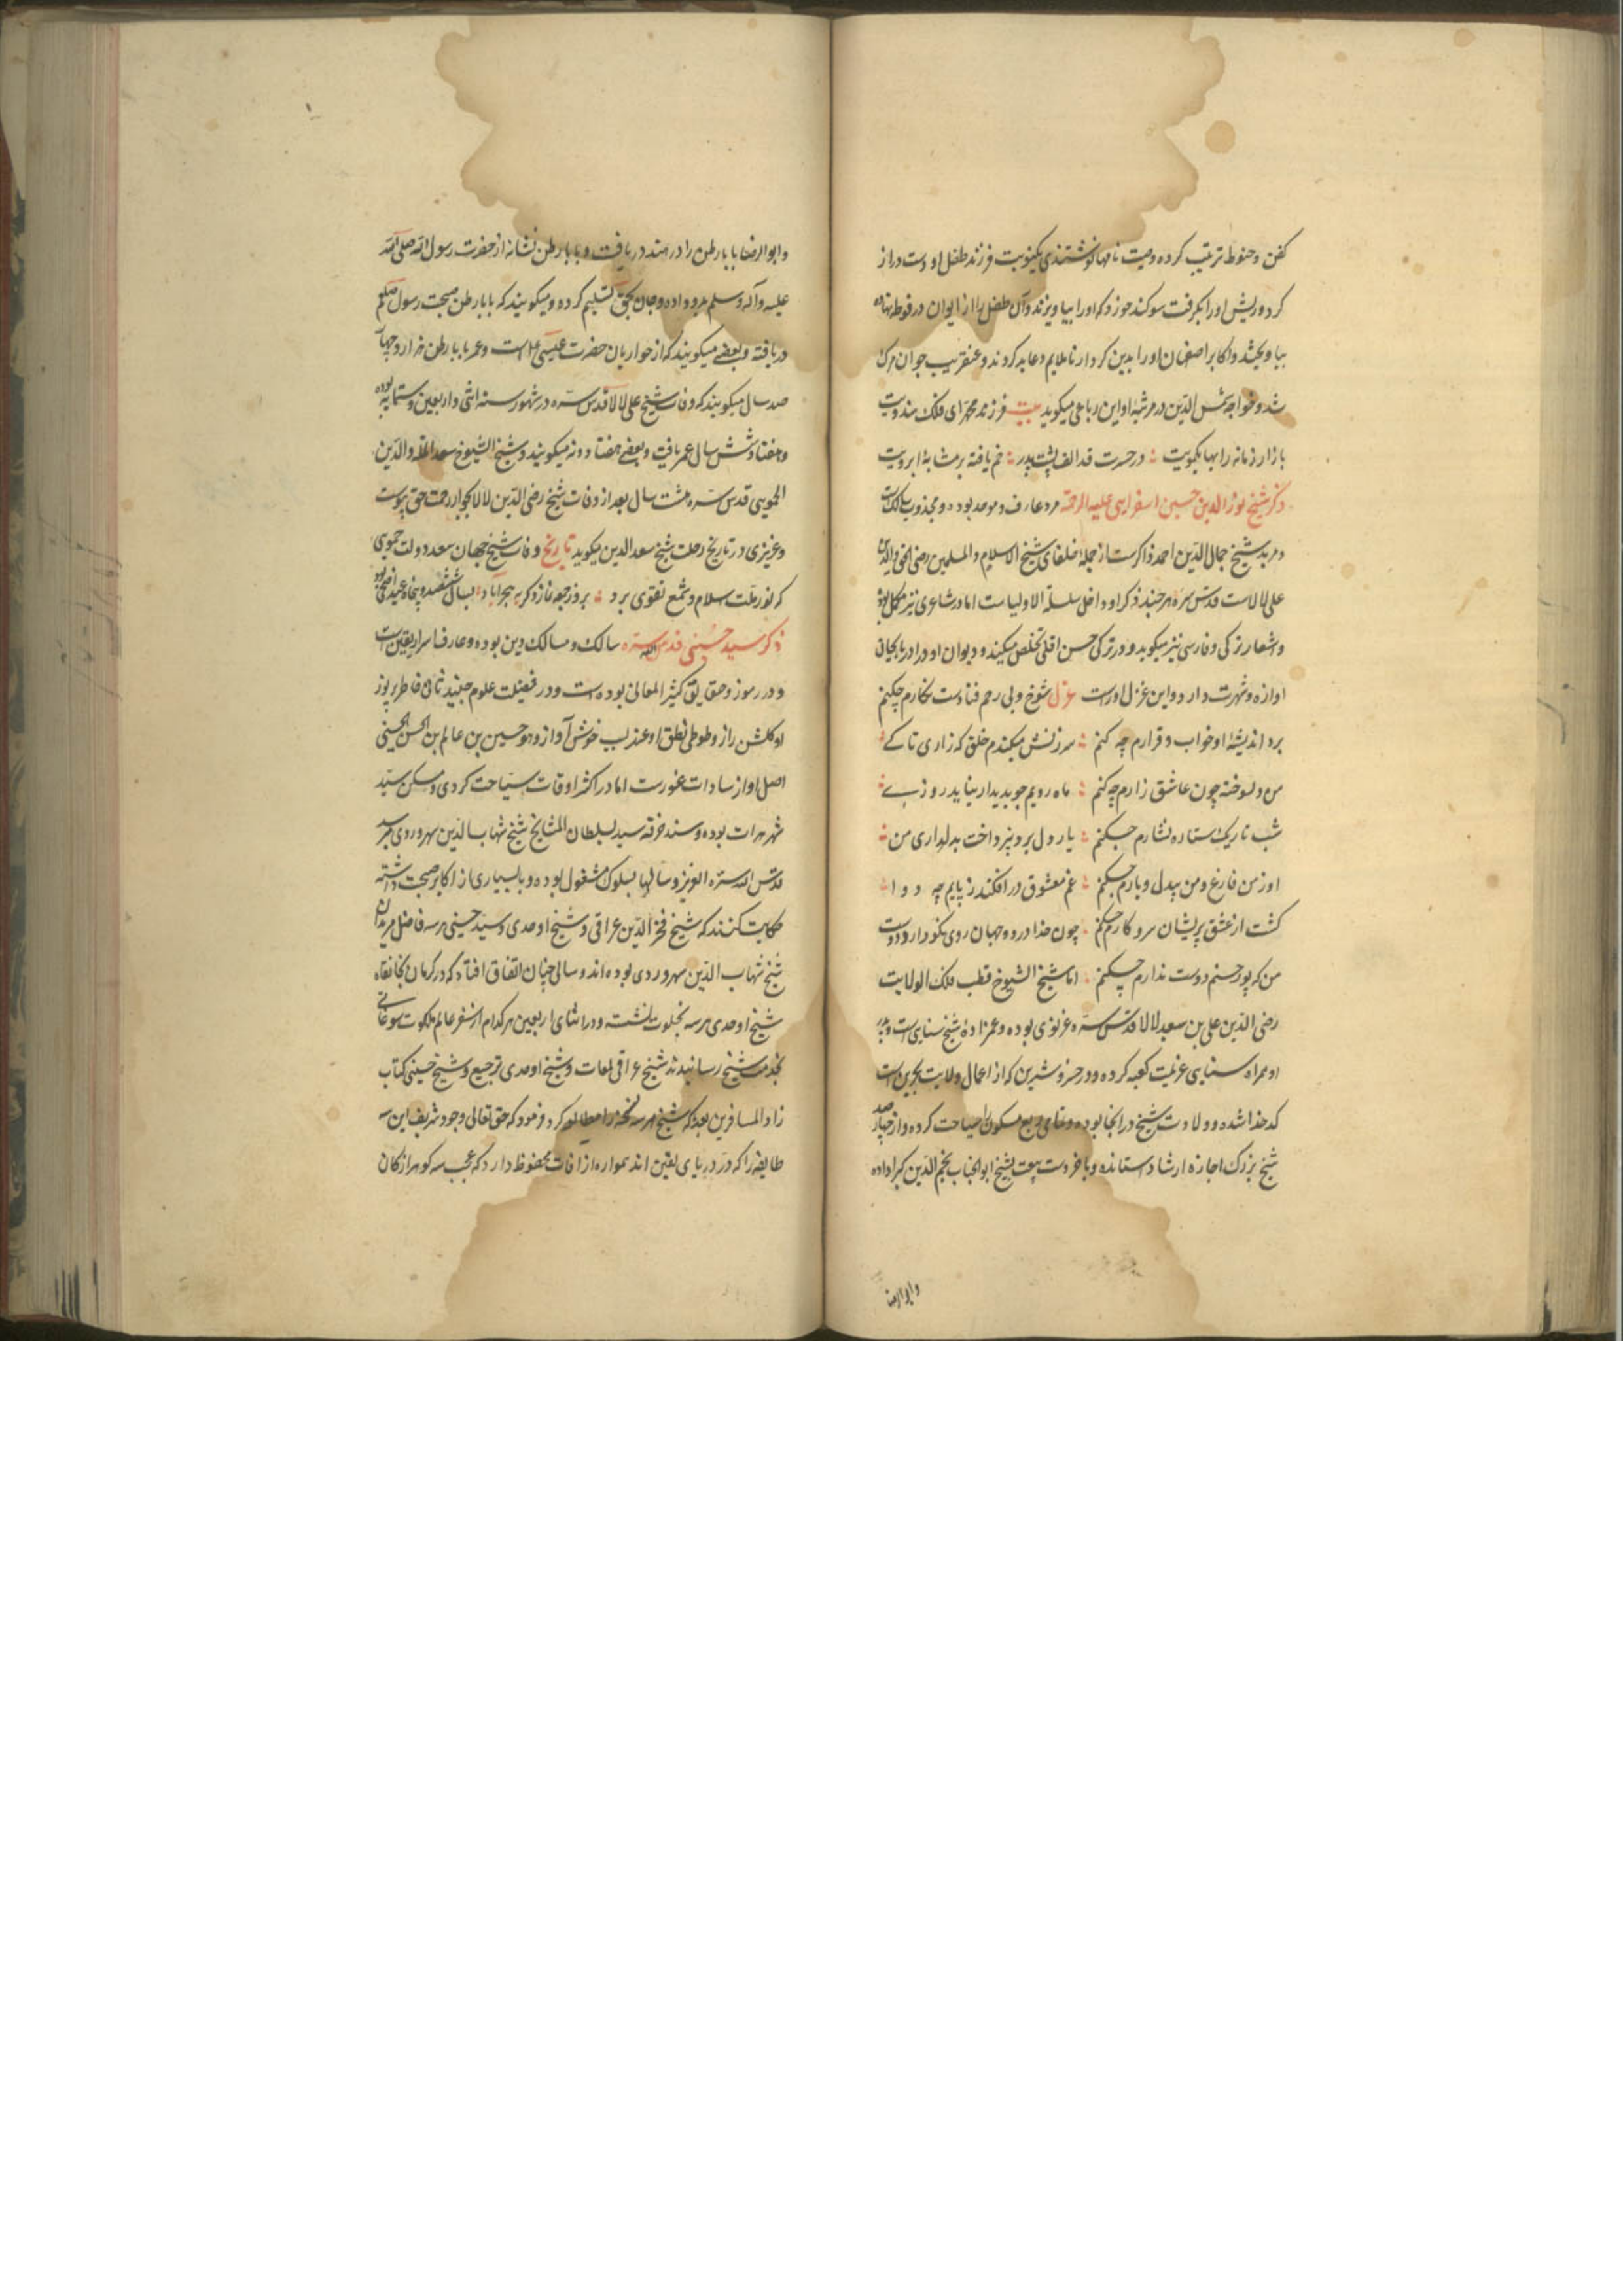 کفن و حنوط ترتیب کرده وصیت نامها نوشتندی یکنوبت فرزند طفل او دست دراز
کرد و ریش او را بگرفت سوکند خورد که او را بیاویزند و آن طفل را از ایوان در فوطه نهاده
بیاویختند و اکابر اصفهان او را بدین کردار ناملایم دعا بد کردند و عنقریب جوان مرک
شد و خواجه شمس الدین در مرثیه او این رباعی میکوید بیت فرزند محمد ای فلک هندویت
بازار زمانه را بها یکمویت ؞ در حسرت قد الف پشت پدر ؞ خم یافته بر مشابه ابرویت
ذکر شیخ نور الدین حسین اسفراینی علیه الرحمة مرد عارف و موحد بوده و مجذوب سالک است
و مرید شیخ جمال الدین احمد ذاکرست از جمله خلفای شیخ الاسلام والمسلمین رضی الحق والدین
علی لالاست قدس سره هر چند ذکر او داخل سلسلة الاولیاست اما در شاعری نیز مکمل بود
و اشعار ترکی و فارسی نیز میکوید و در ترکی حسن اقلی تخلص میکند و دیوان او در اذربایجان
اوازه و شهرت دارد و این غزل اوراست غزل شوخ و بی رحم فتادست نکارم چکنم
برد اندیشهٔ او خواب و قرارم چه کنم ؞ سرزنش میکندم خلق که زاری تا کے ؞
من دلسوخته چون عاشق زارم چه کنم ؞ ماه رویم چو بدیدار نیاید روز بے ؞
شب تاریک ستاره نشارم چکنم ؞ یار دل برد و نپرداخت بدلداری من ؞
او ز من فارغ و من بیدل و یارم چکنم ؞ غم معشوق در افکند ز پایم چه دوا ؞
کشت از عشق پریشان سر و کارم چکنم . چون خدا در دو جهان روی نکو دارد دوست
من که پور حسنم دوست ندارم چکنم . اما شیخ الشیوخ قطب فلک الولایت
رضی الدین علی بن سعید لالا قدس سره غزنوی بوده و عمزادهٔ شیخ سنایی است و پدر
او همراه سنایی عزیمت کعبه کرده و در خسرو شیرین که از اعمال ولایت بحرین است
کدخدا شده و ولادت شیخ در انجا بوده و تمامی ربع مسکون را سیاحت کرده و از چهار صد
شیخ بزرک اجازه ارشاد ستانده و باخر دست بیعت بشیخ ابو الجناب نجم الدین کبرا داده
و ابو الرضا
و ابو الرضا بابا رطن را در هند دریافت و بابا رطن نشانه از حضرت رسول الله صلی الله
علیه و آله و سلم بدو داده و جان بحق تسلیم کرده و میکویند که بابا رطن صحبت رسول صلعم
دریافته و بعضے میکویند که از حواریان حضرت عیسی ع است و عمر بابا رطن هزار و چهار
صد سال میکویند که وفات شیخ علی لالا قدس سره در شهور سنه اثنی و اربعین و ستمایه بوده
و هفتاد و شش سال عمر یافت و بعضے هفتاد و نه میکویند و شیخ الشیوخ سعد الملة والدین
الحمویی قدس سره هشت سال بعد از وفات شیخ رضی الدین لالا بجوار رحمت حق پیوست
و عزیزی در تاریخ رحلت شیخ سعد الدین میکوید تاریخ وفات شیخ جهان سعد دولت حموی
که نور ملت اسلام و شمع تقوی برد ؞ بروز جمعه نماز دکر به بحراباد بسال ششصد و پنجاه عید اضحی بود
ذکر سید حسینی قدس الله سره سالک و مسالک دین بوده و عارف اسرار یقین است
و در رموز و حقایق کثیر المعانی بوده است و در فضیلت علوم جنید ثانی خاطر پر نور
او کلشن راز و طوطی نطق او عندلیب خوش آواز و هو حسین بن عالم بن الحسن الحسینی
اصل او از سادات غورست اما در اکثر اوقات سیاحت کردی و مسکن سید
شهر هرات بوده و سند خرقه سید بسلطان المشایخ شیخ شهاب الدین سهروردی میرسد
قدس الله سره العزیز و سالها بسلوک مشغول بوده و با بسیاری از اکابر صحبت داشته
حکایت کنند که شیخ فخر الدین عراقی و شیخ اوحدی و سید حسینی هر سه فاضل مریدان
شیخ شهاب الدین سهروردی بوده اند و سالی چنان اتفاق افتاد که در کرمان بخانقاه
شیخ اوحدی هر سه بخلوت نشسته و در اثنای اربعین هر کدام از سفر عالم ملکوت سوغاتی
بخدمت شیخ رسانیدند شیخ عراقی لمعات و شیخ اوحدی ترجیع و شیخ حسینی کتاب
زاد المسافرین بعده که شیخ هر سه نسخه را مطالعه کرد و فرمود که حق تعالی وجود شریف این سه
طایفه را که در دریای یقین اند همواره از افات محفوظ دارد که عجب سه کوهر از کان